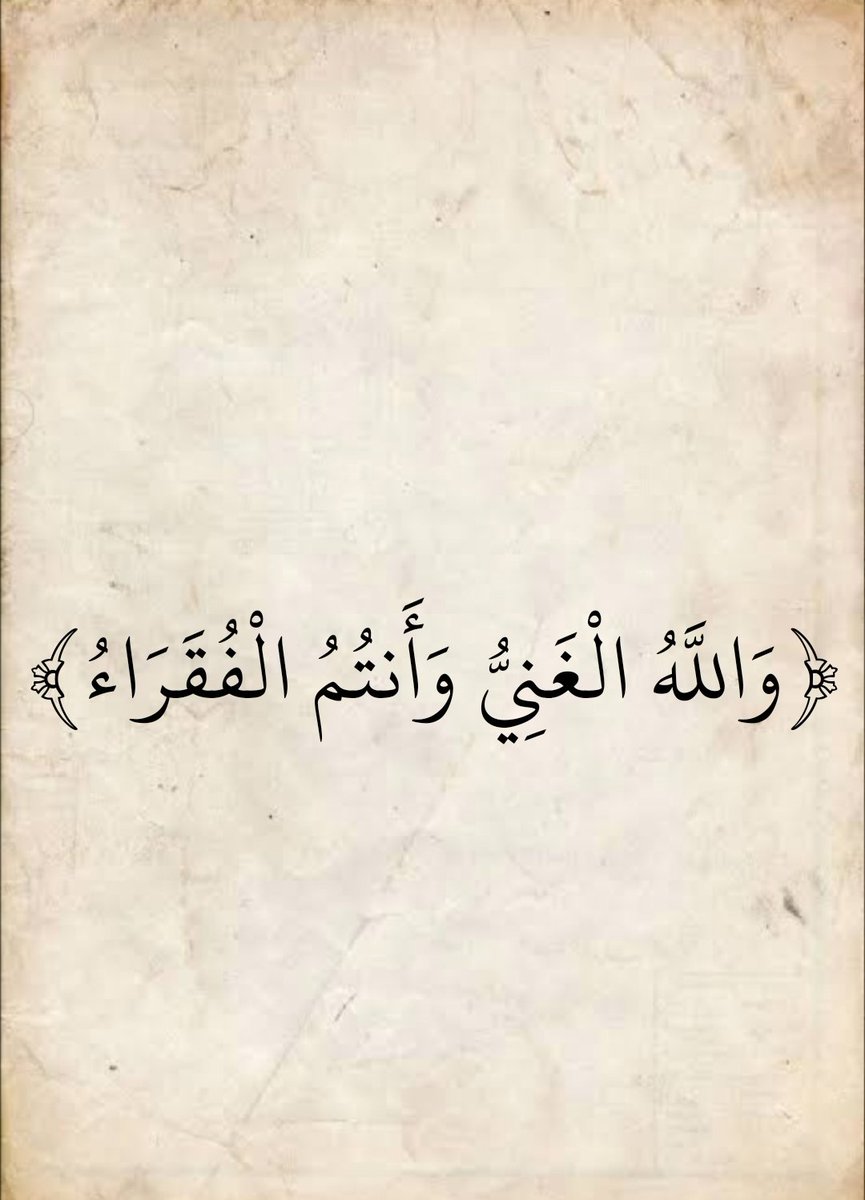 ﴿وَاللَّهُ الْغَنِيُّ وَأَنتُمُ الْفُقَرَاءُ﴾